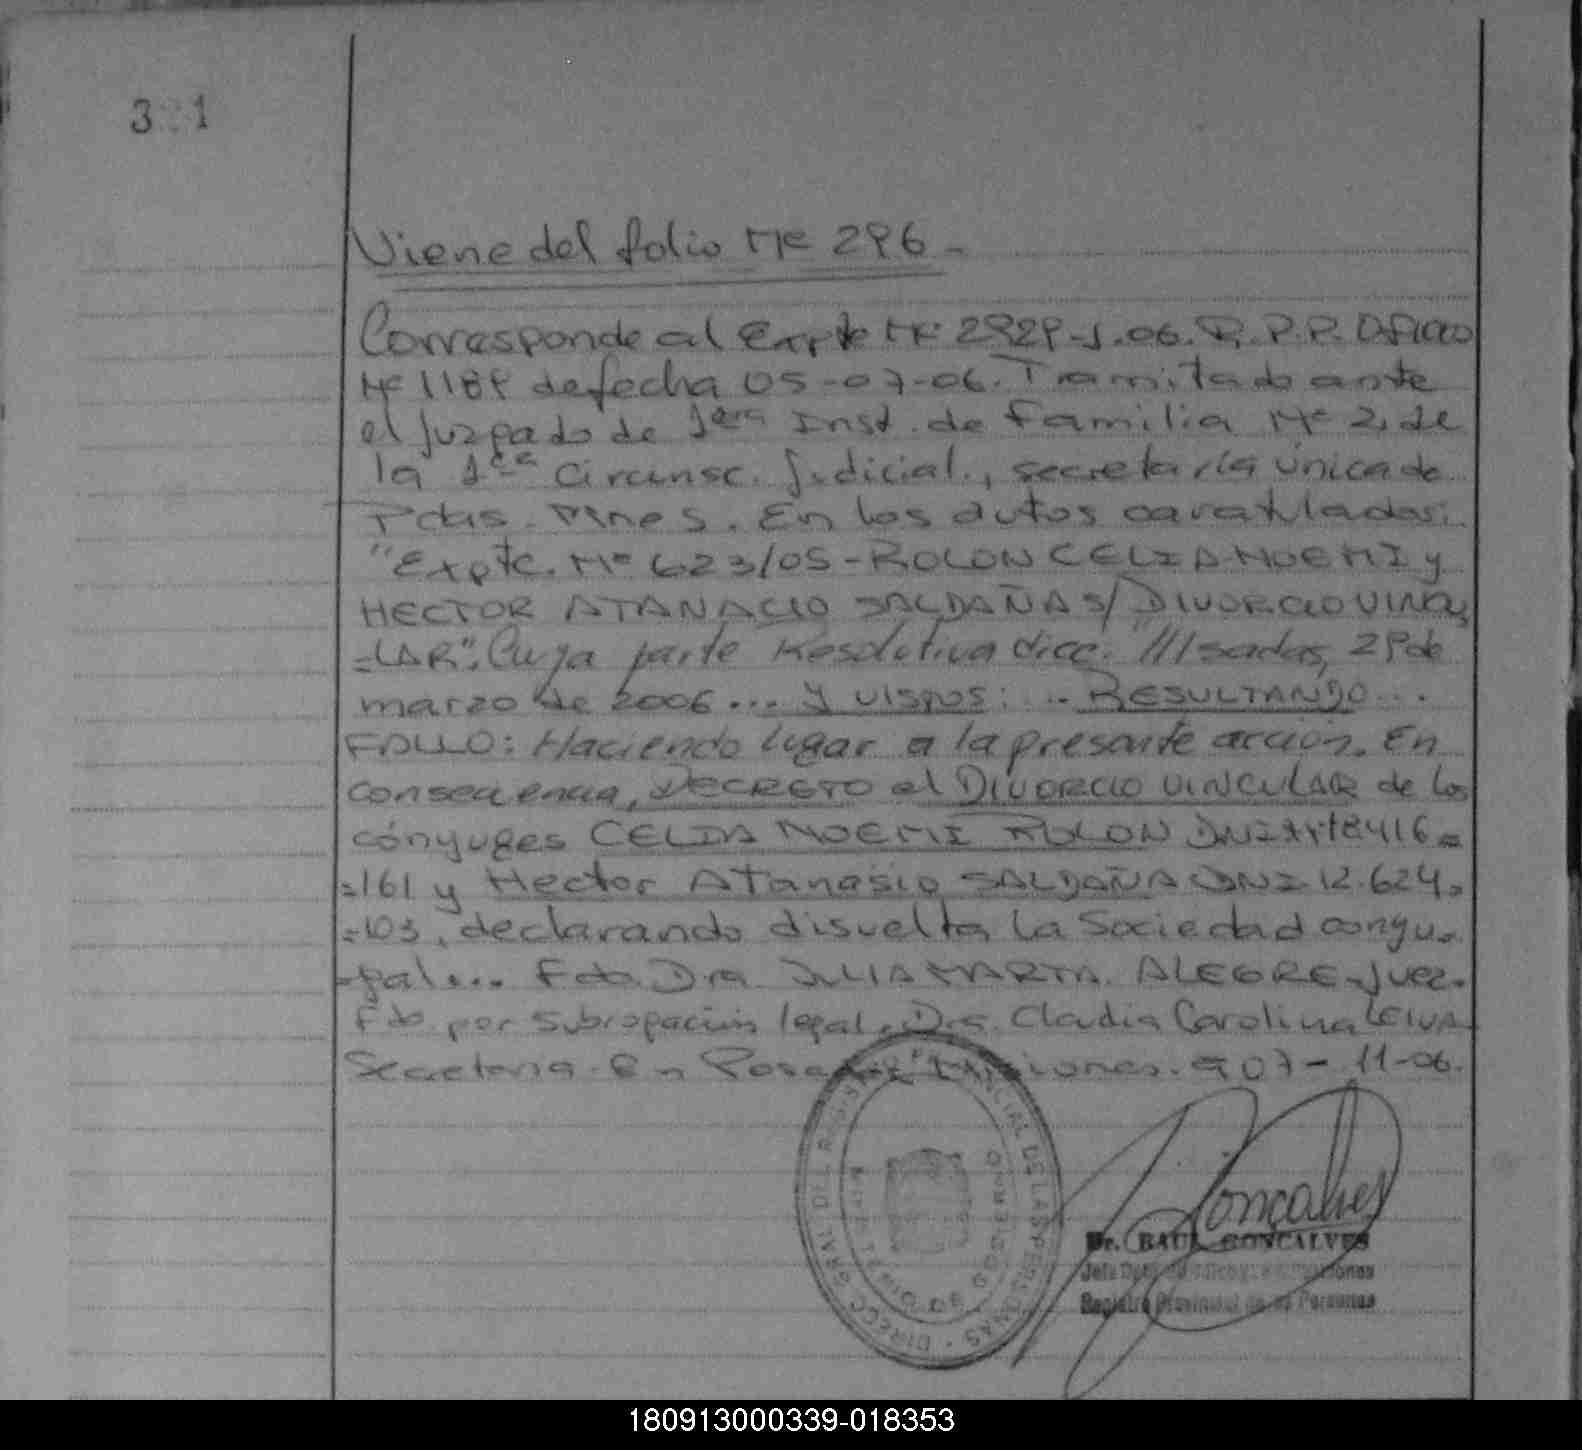 321
Viene del folio Nº 296.-
Corresponde al Expte Nº 2929-J.06.R.P.P. Oficio
Nº 1189 de fecha 05-07-06. Tramitado ante
el Juzgado de 1era Inst. de Familia Nº 2, de
la 1era Circunsc. Judicial., secretaría única de
Pdas. Mnes. En los autos caratulados:
"Expte. Nº 623/05-ROLON CELIA NOEMI y
HECTOR ATANACIO SALDAÑAS/DIVORCIO VINCU
=LAR". Cuya parte Resolutiva dice: "///sadas, 29 de
marzo de 2006... Y VISTOS: ... RESULTANDO...
FALLO: Haciendo lugar a la presente acción. En
consecuencia, DECRETO el DIVORCIO VINCULAR de los
cónyuges CELIA NOEMI ROLON DNI 18416=
=161 y Hector Atanasio SALDAÑA DNI 12.624.
=103, declarando disuelta la Sociedad conyu-
-gal... Fdo. Dra. JULIA MARTA ALEGRE-Juez.
Fdo por subrogación legal. Dra. Claudia Carolina LEIVA
Secretaria. En Posadas Misiones. a 07-11-06.
DIRECC. GRAL. DEL REGISTRO PROVINCIAL DE LAS PERSONAS
Goncalves
Dr. RAUL GONCALVES
Registro Provincial de las Personas
180913000339-018353